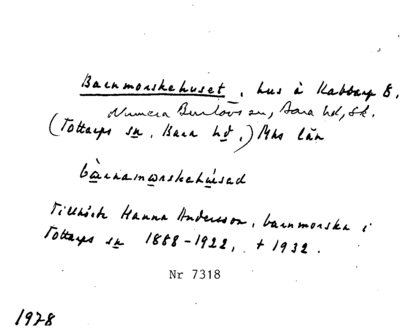 Barnmorskehuset, hus å Kabbarp 8.
Numera Burlövs sn, Bara hd, Sk.
(Tottarps sn, Bara hd,) Mhs län
bàrnamorskehúsad
Tillhört Hanna Andersson, barnmorska i
Tottarps sn 1888-1922, + 1932.
Nr 7318
1928